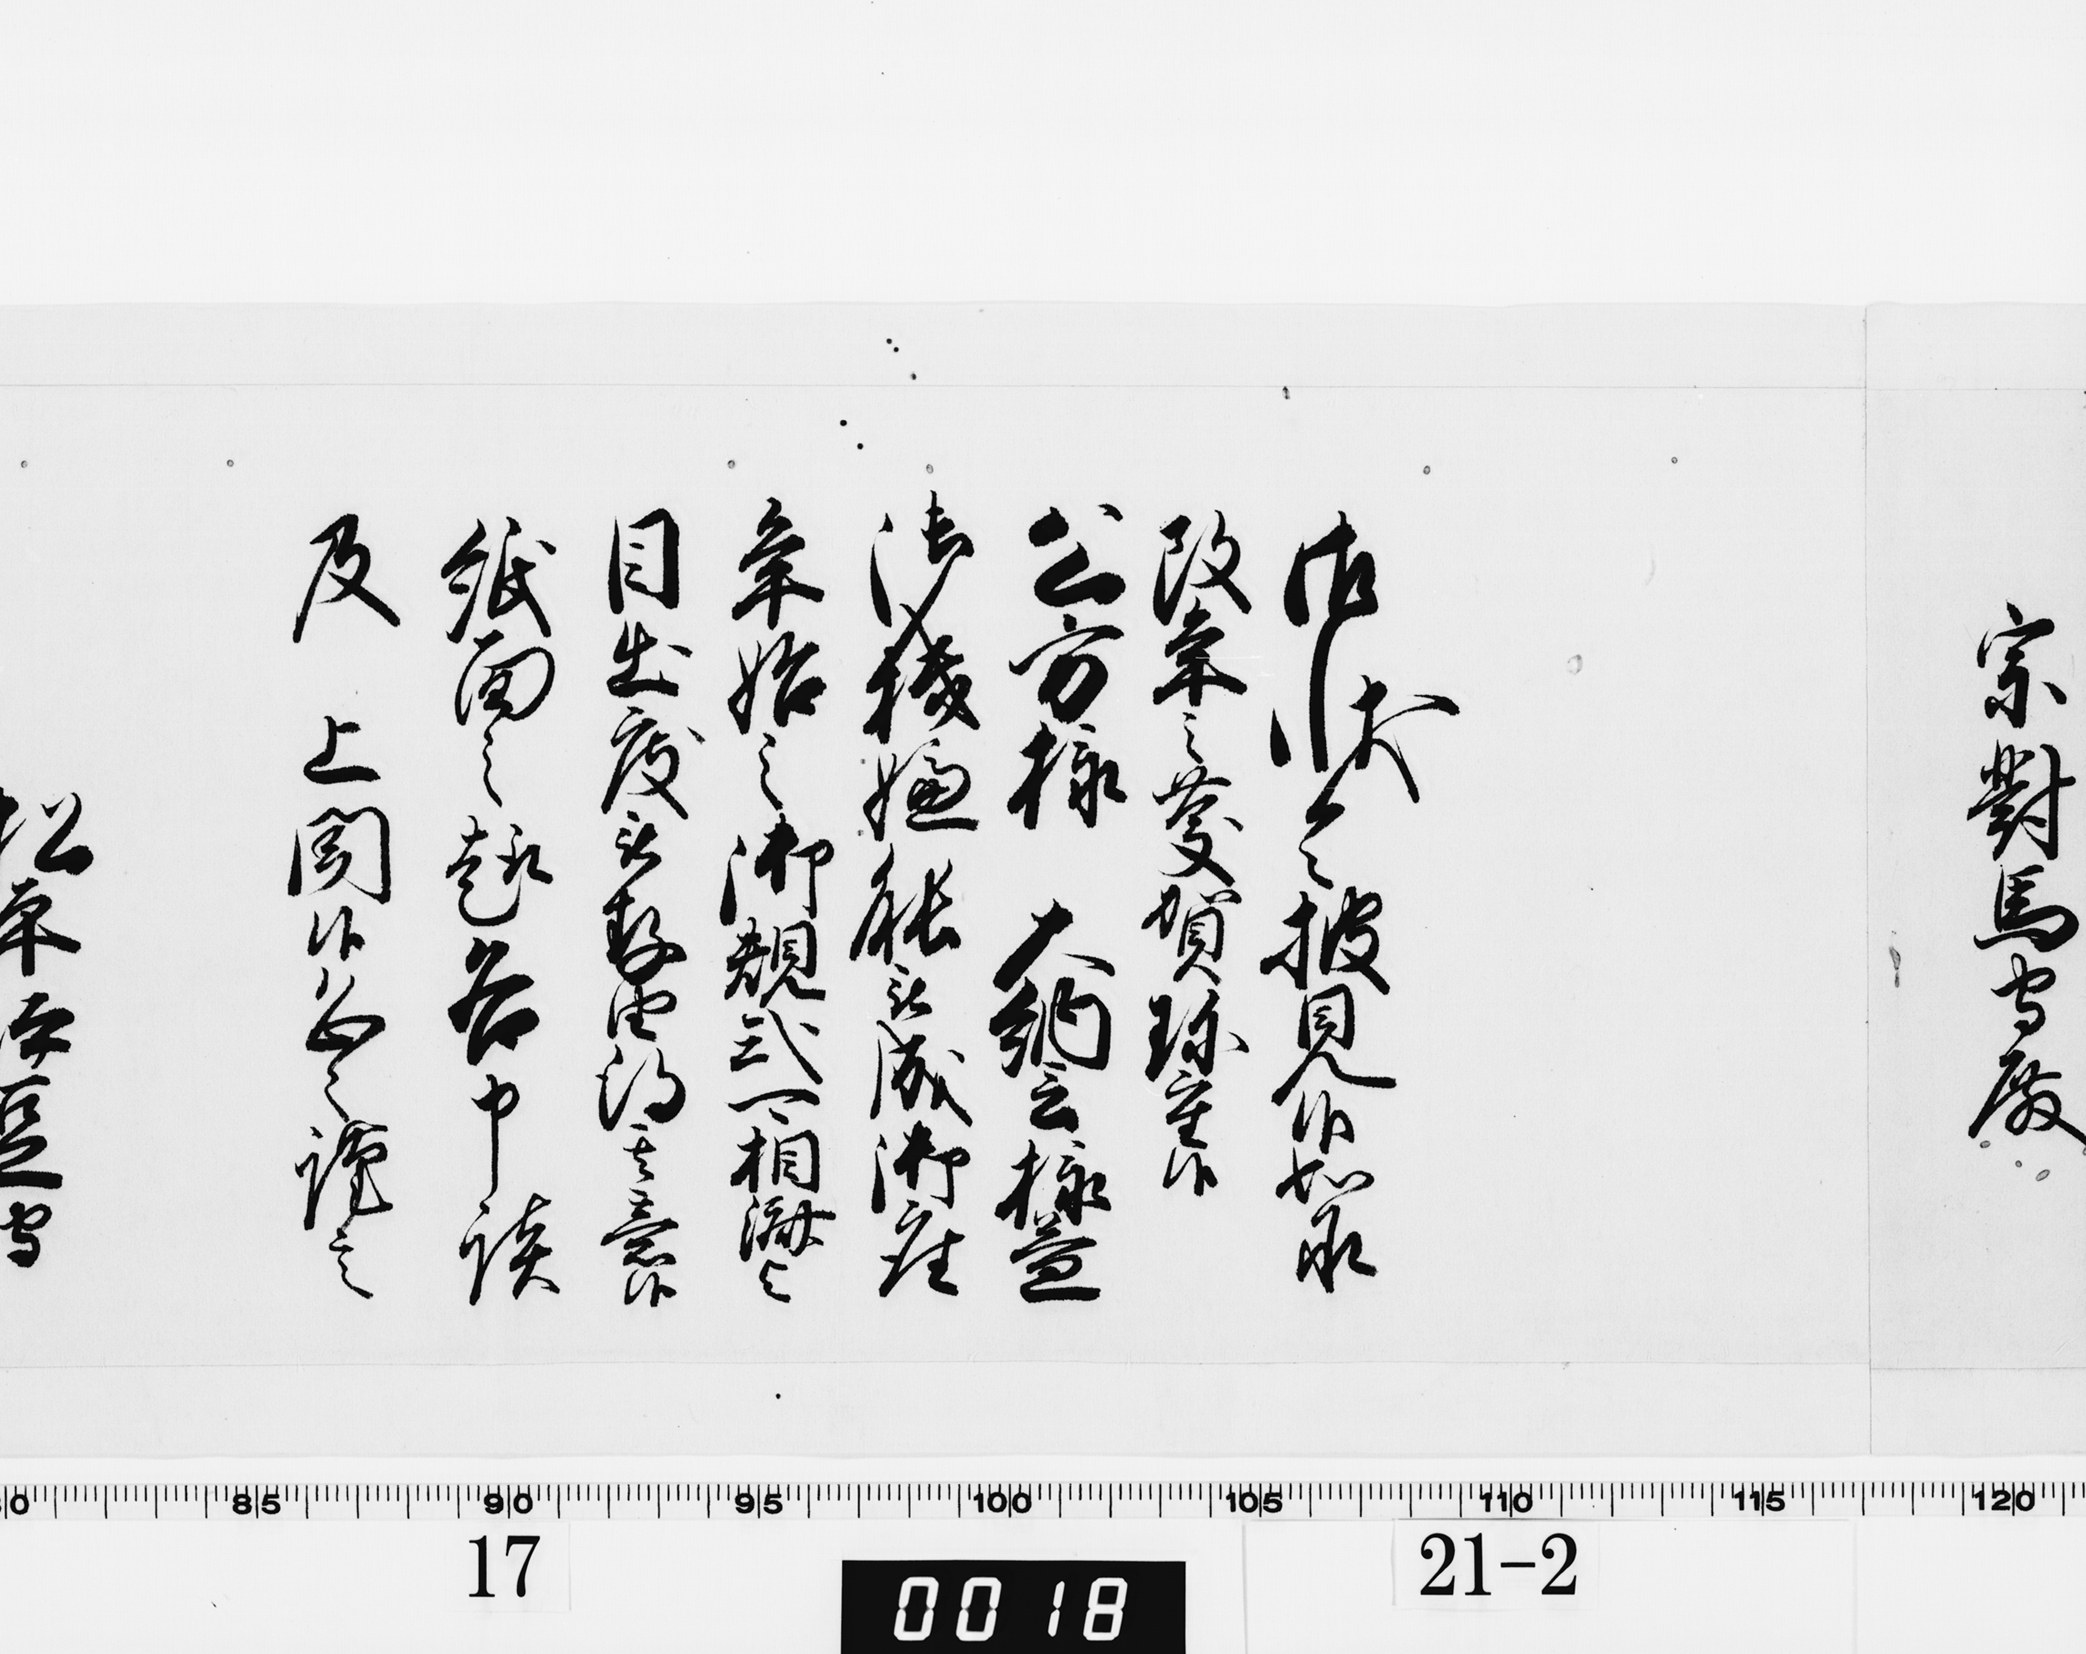 宗對馬守殿
御状令披見候如承
改年之慶賀珍重候
公方様 大納言様益
御機嫌能被成御座
年始之御規式一相済之
目出度被
紙面之趣各申談
及 上聞候恐々謹言
松平伊豆守
80 85 90 95 100 105 110 115 120
17
0018
21-2